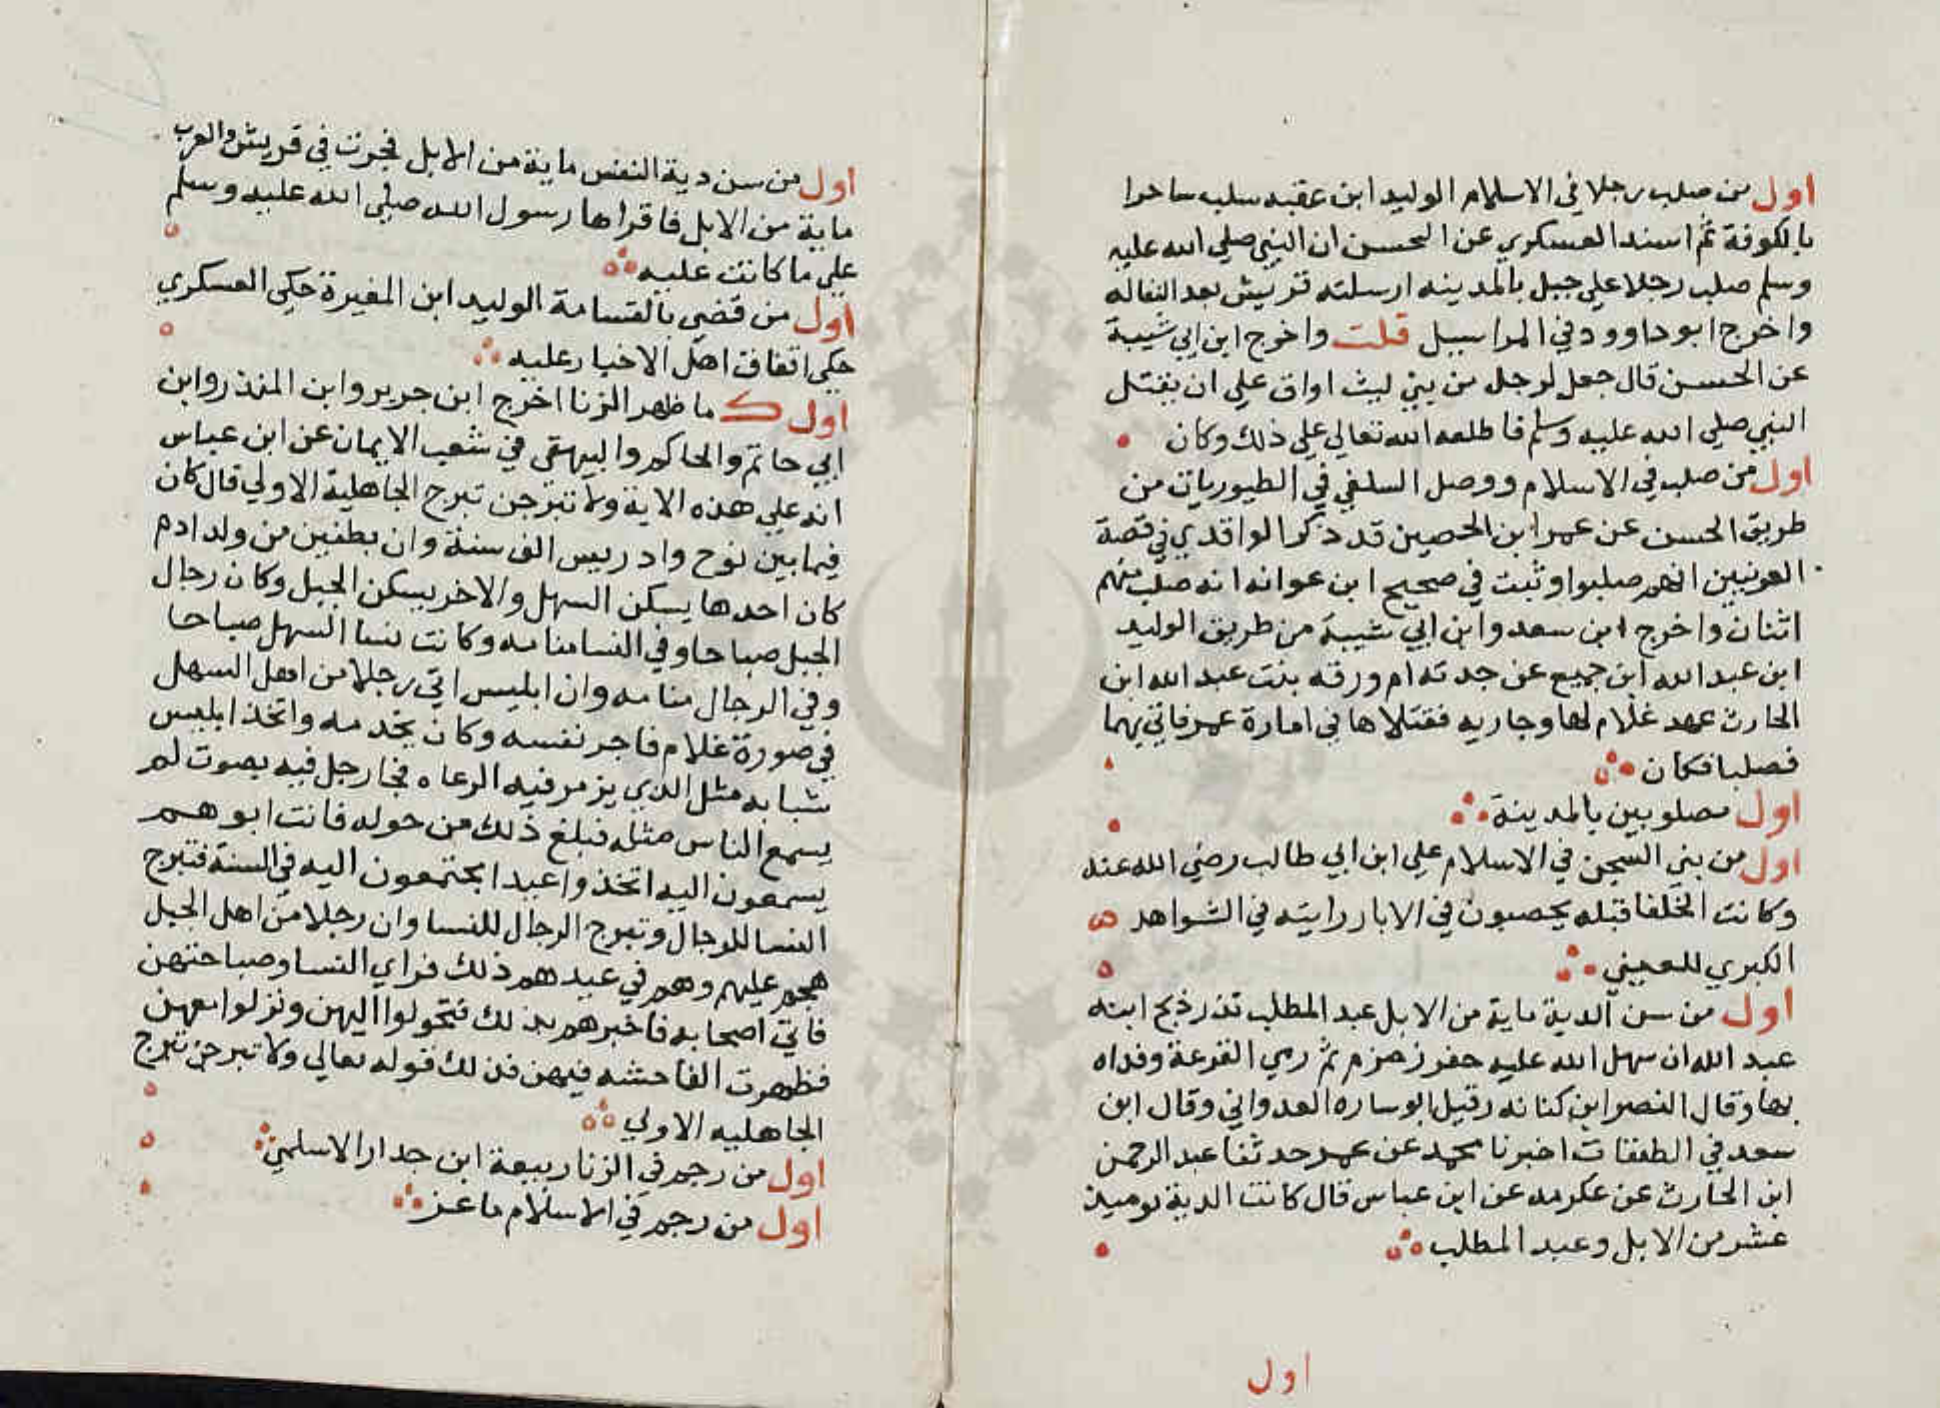 اول من صلب رجلا في الاسلام الوليد ابن عقبه سلب ساحرا
بالكوفة ثم اسند العسكري عن الحسن ان النبي صلي الله عليه
وسلم صلب رجلا علي جبل بالمدينه ارسلته قريش بعد النفاله
واخرج ابو داوود في المراسيل قلت واخرج ابن ابي شيبة
عن الحسن قال جعل لرجل من بني ليث اواق علي ان يقتل
النبي صلي الله عليه وسلم فاطلعه الله تعالي علي ذلك وكان
اول من صلب في الاسلام ووصل السلفي في الطيوريات من
طريق الحسن عن عمر ابن الحصين قد ذكر الواقدي في قصة
العرنيين انهم صلبوا وثبت في صحيح ابن عوانه انه صلب منهم
اثنان واخرج ابن سعد وابن ابي شيبة من طريق الوليد
ابن عبد الله ابن جميع عن جدته ام ورقه بنت عبد الله ابن
الحارث عهد غلام لها وجاريه فقتلاها في امارة عمر فاتي بهما
فصلبا فكان
اول مصلوبين بالمدينة
اول من بني السجن في الاسلام علي ابن ابي طالب رضي الله عنه
وكانت الخلفا قبله يحصبون في الابار رايته في الشواهد
الكبري للعيني
اول من سن الدية ماية من الابل عبد المطلب نذر ذبح ابنه
عبد الله ان سهل الله عليه حفر زمزم ثم رمي القرعة وفداه
بها وقال النصر ابن كنانه وقيل ابو ساره العدواني وقال ابن
سعد في الطبقات اخبرنا محمد عن عمر حدثنا عبد الرحمن
ابن الحارث عن عكرمه عن ابن عباس قال كانت الدية يوميذ
عشر من الابل وعبد المطلب
اول
اول من سن دية النفس ماية من الابل فجرت في قريش والعرب
ماية من الابل فاقراها رسول الله صلي الله عليه وسلم
علي ما كانت عليه
اول من قضي بالقسامة الوليد ابن المغيرة حكي العسكري
حكي اتفاق اهل الاخبار عليه
اول ك ما ظهر الزنا اخرج ابن جرير وابن المنذر وابن
ابي حاتم والحاكم والبيهقي في شعب الايمان عن ابن عباس
انه علي هذه الاية ولا تبرجن تبرج الجاهلية الاولي قال كان
فيما بين نوح وادريس الف سنة وان بطنين من ولد ادم
كان احدها يسكن السهل والاخر يسكن الجبل وكان رجال
الجبل صباحا وفي النسا منامه وكانت نسا السهل صباحا
وفي الرجال منامه وان ابليس اتي رجلا من اهل السهل
في صورة غلام فاجر نفسه وكان يخدمه واتخذ ابليس
شبابه مثل الذي يزمر فيه الرعاه فجا رجل فيه بصوت لم
يسمع الناس مثله فبلغ ذلك من حوله فانتابوهم
يسمعون اليه اتخذوا عيدا يجتمعون اليه في السنة فتبرج
النسا للرجال وتبرج الرجال للنسا وان رجلا من اهل الجبل
هجم عليهم وهم في عيدهم ذلك فراي النسا وصباحتهن
فاتي اصحابه فاخبرهم بذلك فتحولوا اليهن ونزلوا معهن
فظهرت الفاحشه فيهن فذلك قوله تعالي ولا تبرجن تبرج
الجاهليه الاولي
اول من رجم في الزنا ربيعة ابن حدار الاسلمي
اول من رجم في الاسلام ماعز